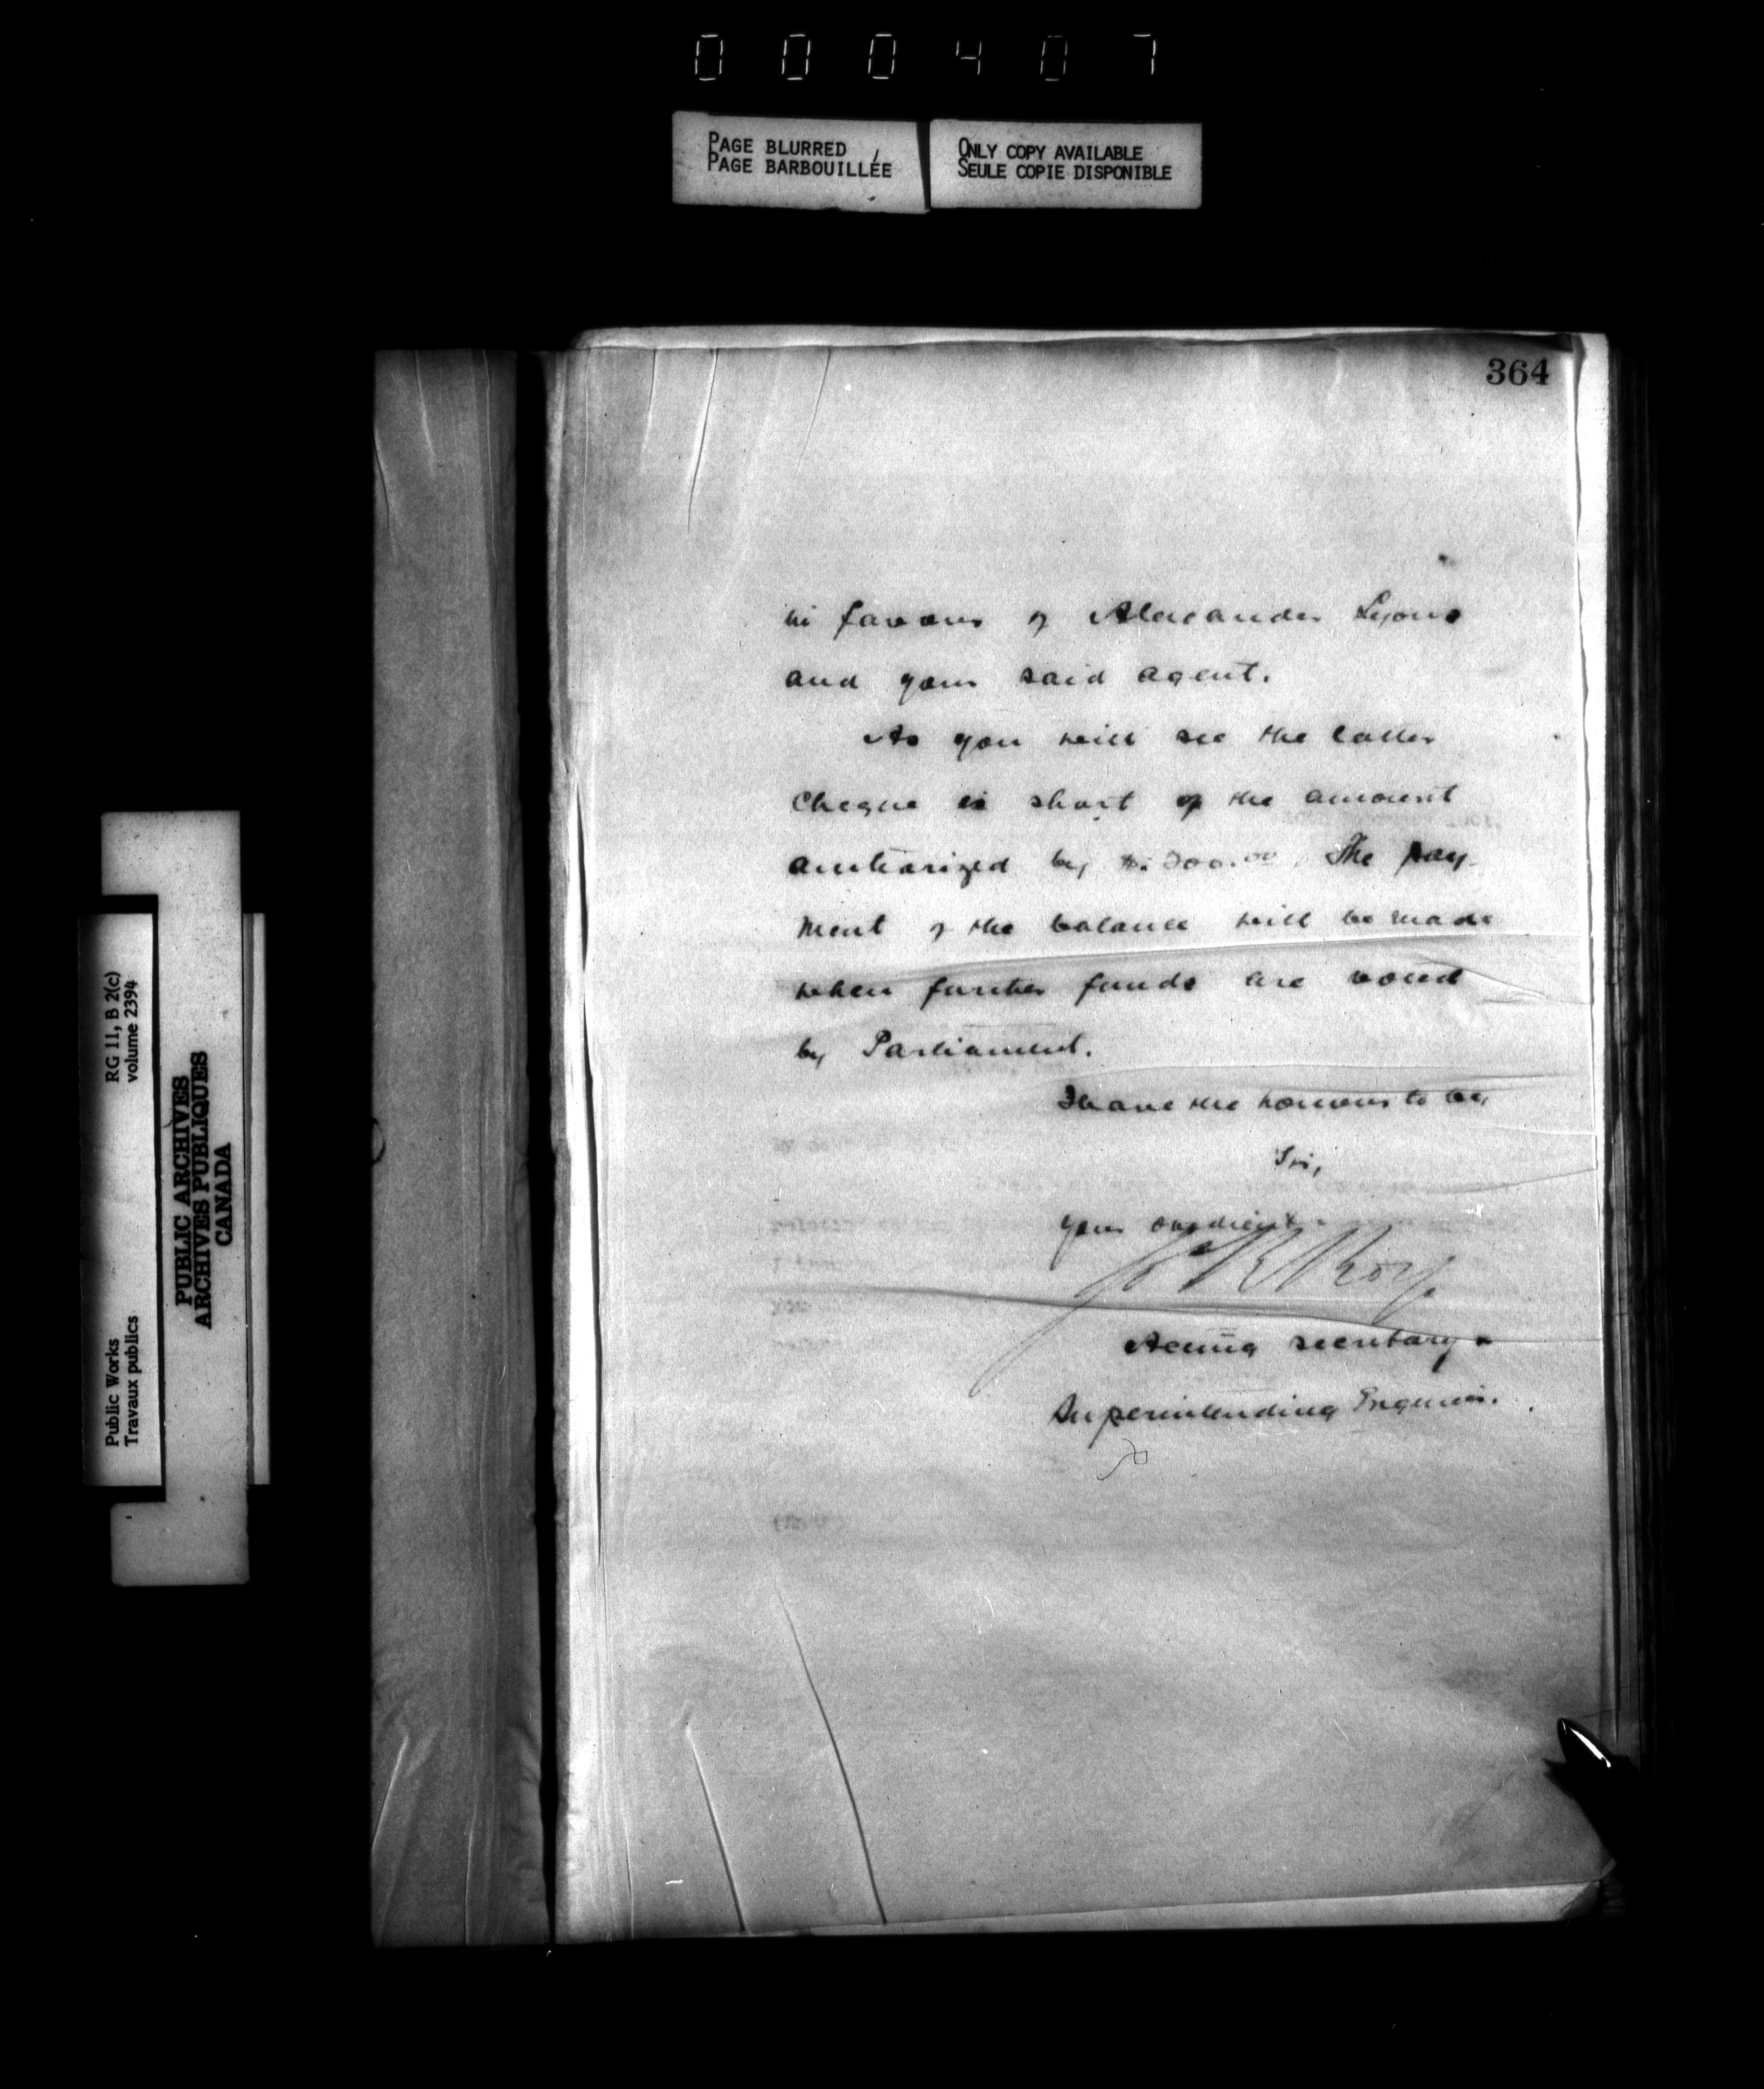 000407
PAGE BLURRED
PAGE BARBOUILLÉE
ONLY COPY AVAILABLE
SEULE COPIE DISPONIBLE
364
in favour of Alexander Lyons
and your said agent.
As you will see the latter
Cheque is short of the amount
authorized by The pay-
ment of the balance will be made
when further funds are voted
by Parliament.
I have the honour to be,
Sir,
your obedient
Roy
Acting secretary &
Superintending Engineer.
RG 11, B 2(c)
volume 2394
Public Works
Travaux publics
PUBLIC ARCHIVES
ARCHIVES PUBLIQUES
CANADA